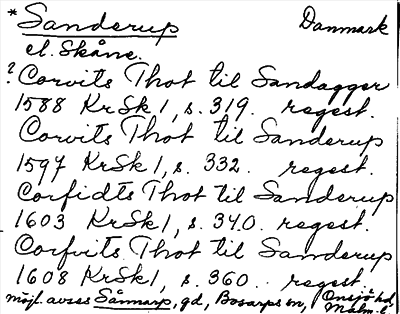 * Sanderup Danmark
el. Skåne.
? Corvits Thot til Sandagger
1588 KrSk 1, s. 319. regest.
Corvits Thot til Sanderup
1597 KrSk 1, s. 332. regest.
Corfidts Thot til Sanderup
1603 KrSk 1, s. 340. regest.
Corfvits Thot til Sanderup
1608 KrSk 1, s. 360. regest.
möjl. avses Sånnarp, gd, Bosarps sn, Onsjö hd,
Malm. l.